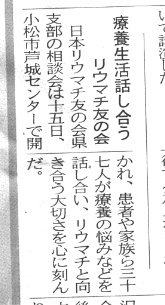 療養生活話し合う
リウマチ友の会
日本リウマチ友の会県
支部の相談会は十五日、
小松市芦城センターで開
かれ、患者や家族ら三十
七人が療養の悩みなどを
話し合い、リウマチと向
き合う大切さを心に刻ん
だ。